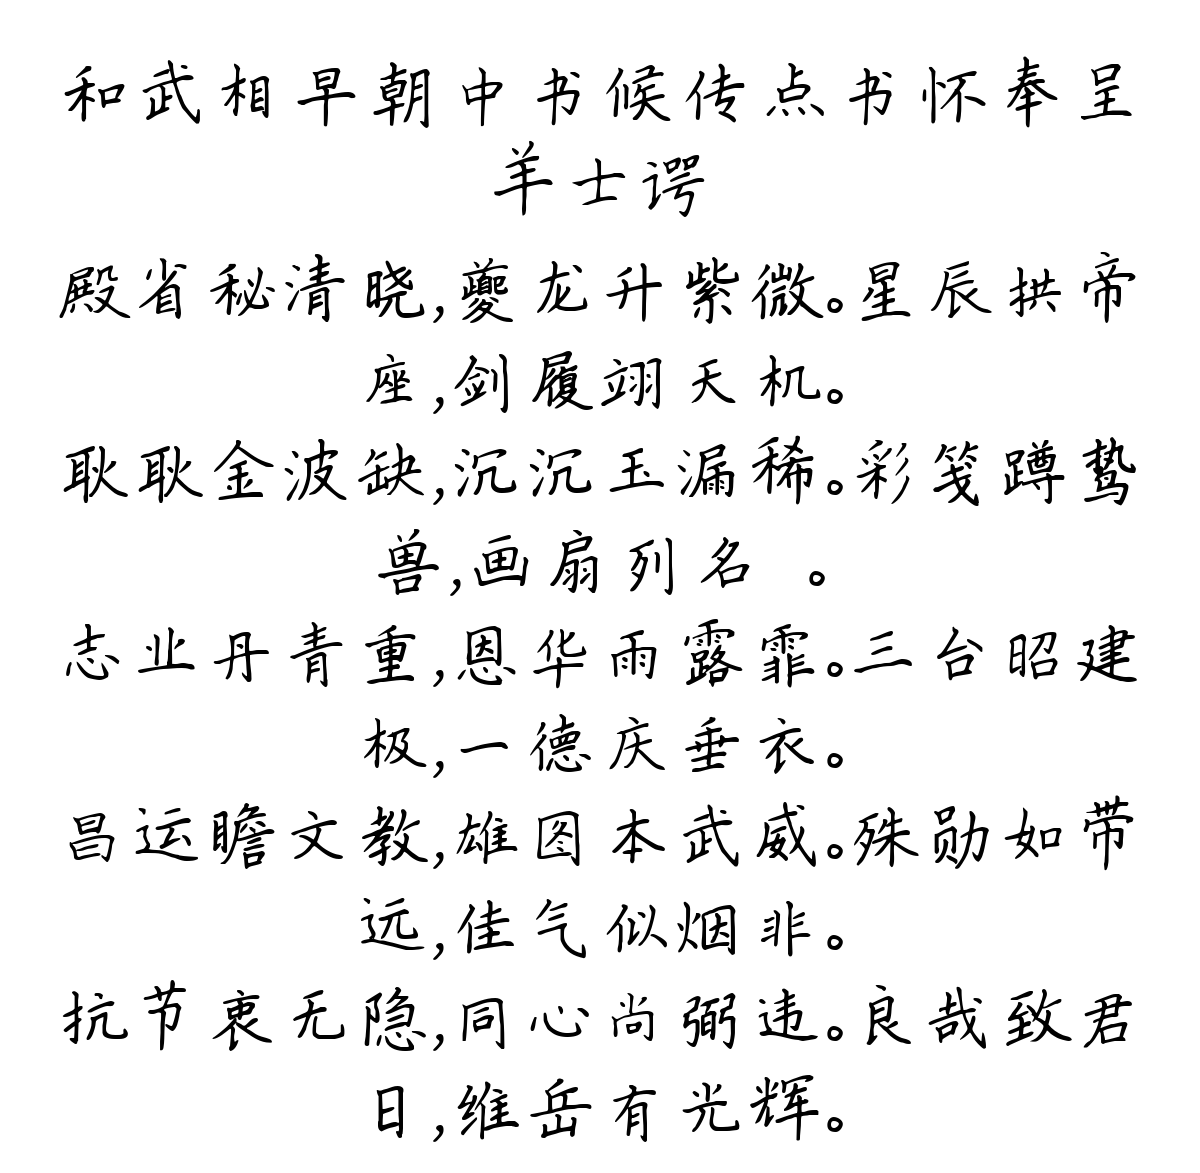 和武相早朝中书候传点书怀奉呈
羊士谔
殿省秘清晓,夔龙升紫微。星辰拱帝
座,剑履翊天机。
耿耿金波缺,沉沉玉漏稀。彩笺蹲鸷
兽,画扇列名 。
志业丹青重,恩华雨露霏。三台昭建
极,一德庆垂衣。
昌运瞻文教,雄图本武威。殊勋如带
远,佳气似烟非。
抗节衷无隐,同心尚弼违。良哉致君
日,维岳有光辉。